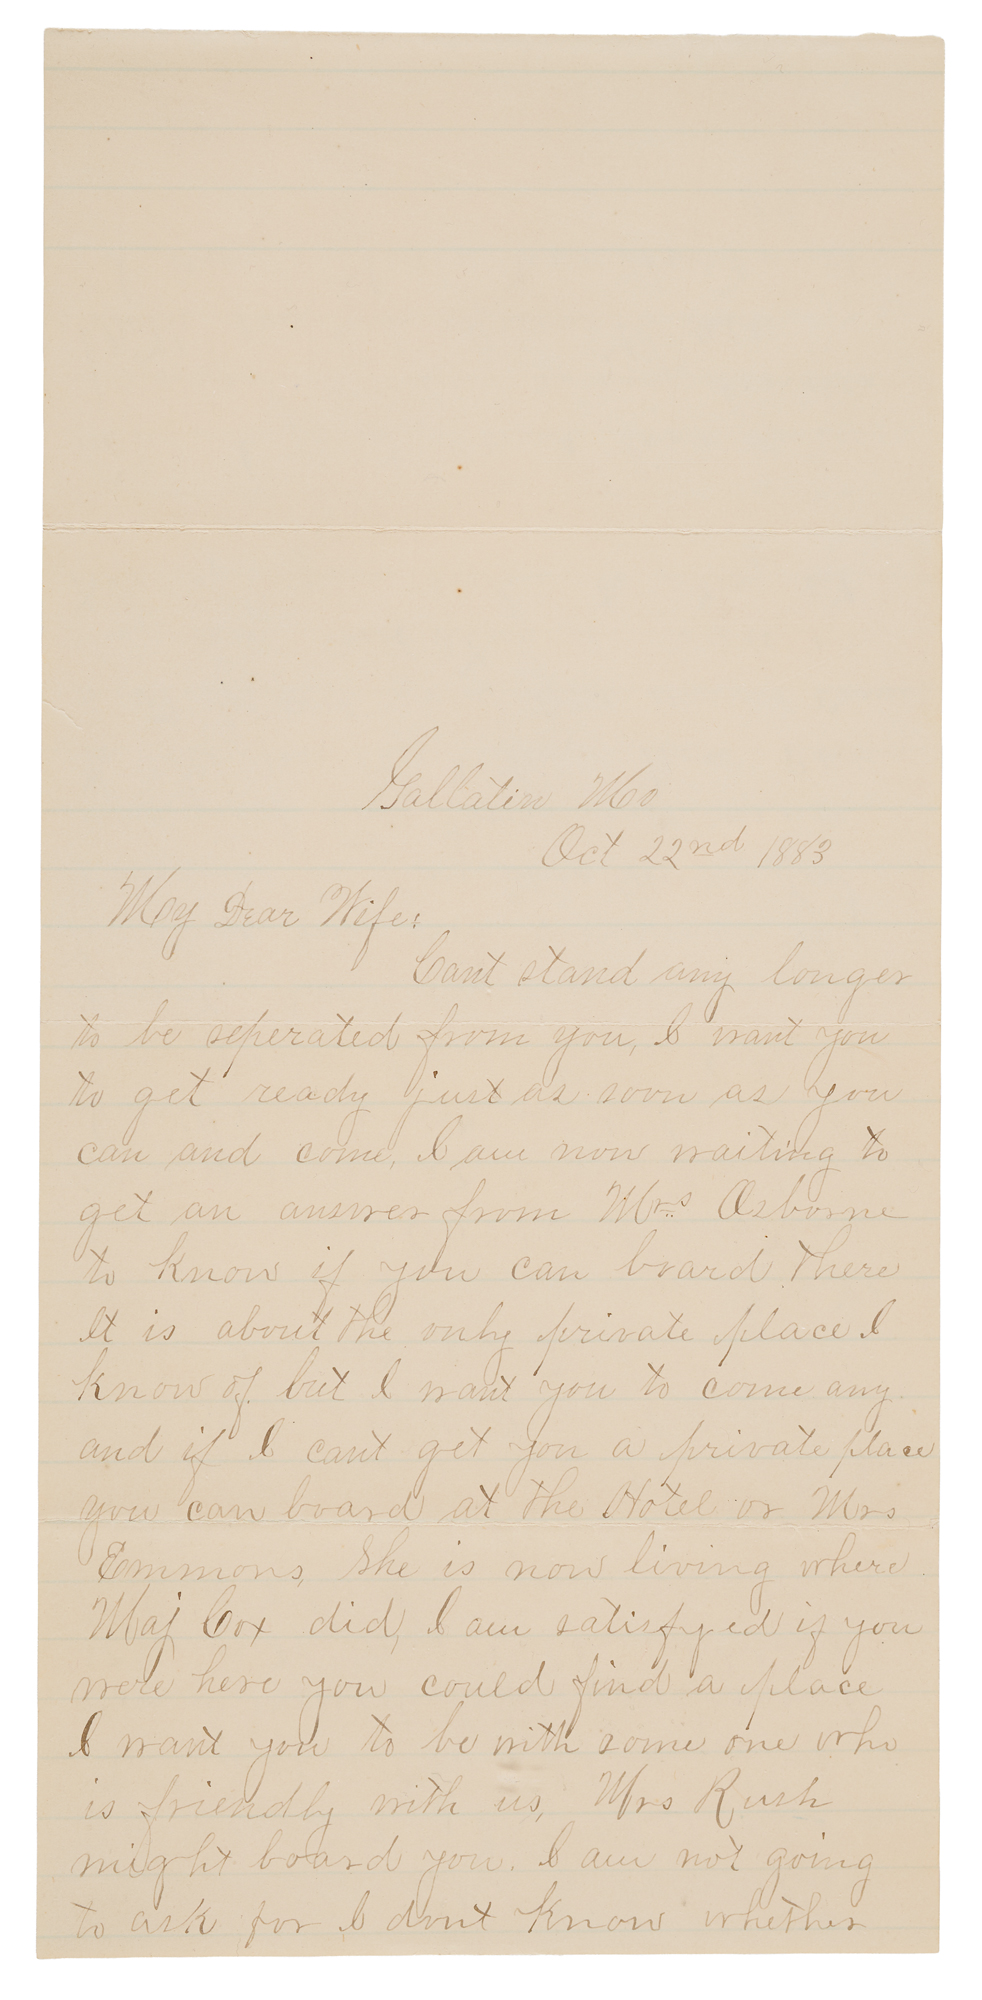 Gallatin Mo
Oct 22nd 1883
My Dear Wife:
Cant stand any longer
to be seperated from you, I want you
to get ready just as soon as you
can and come, I am now waiting to
get an answer from Mrs Osborne
to know if you can board there
It is about the only private place I
know of. but I want you to come any.
and if I cant get you a private place
you can board at the Hotel or Mrs
Emmons, She is now living where
Maj Cox did, I am satisfyed if you
were here you could find a place
I want you to be with some one who
is friendly with us, Mrs Rush
might board you. I am not going
to ask for I dont know whether